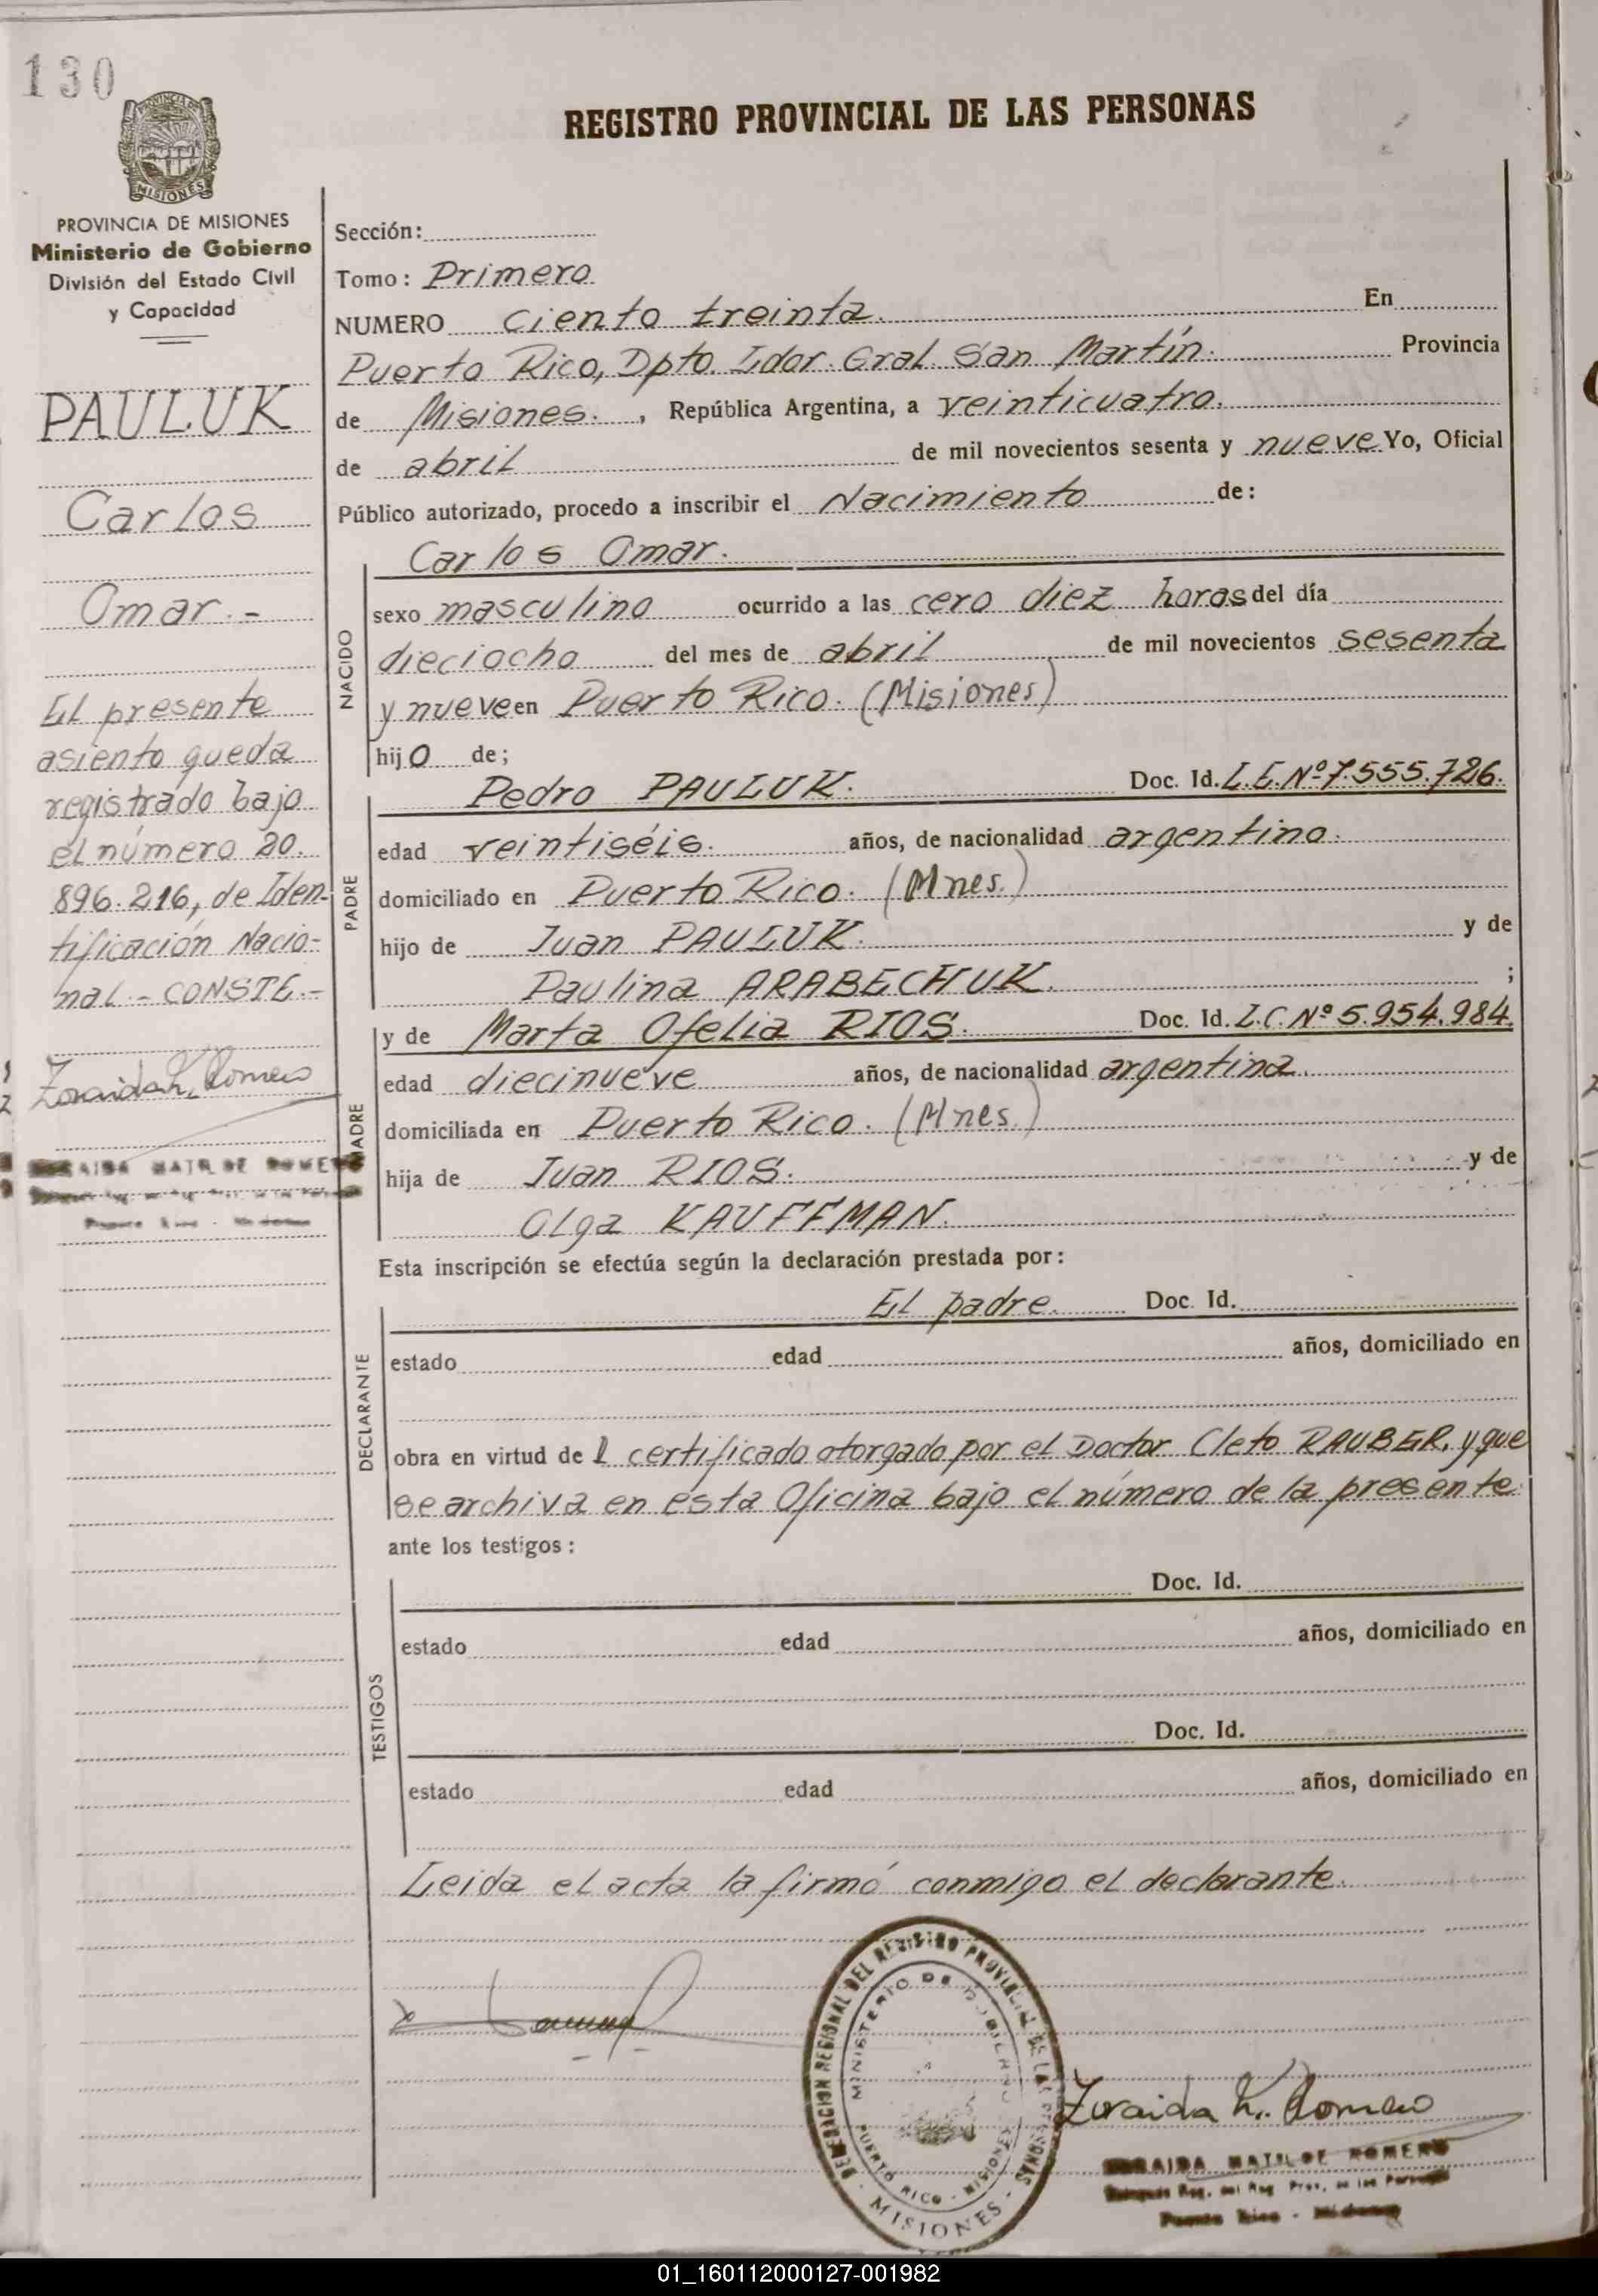 130
REGISTRO PROVINCIAL DE LAS PERSONAS
MISIONES
PROVINCIA DE MISIONES
Ministerio de Gobierno
División del Estado Civil
y Capacidad
PAULUK
Carlos
Omar.-
El presente
asiento queda
registrado bajo
el número 20.
896.216, de Iden-
tificación Nacio-
nal.- CONSTE.-
Zoraida M. Romero
MATILDE ROMERO
Sección:
Tomo: Primero
NUMERO Ciento treinta. En
Puerto Rico, Dpto. Ldor. Gral. San Martín. Provincia
de Misiones. , República Argentina, a veinticuatro.
de abril de mil novecientos sesenta y nueve Yo, Oficial
Público autorizado, procedo a inscribir el Nacimiento de:
Carlos Omar.
NACIDO
sexo masculino ocurrido a las cero diez horas del día
dieciocho del mes de abril de mil novecientos sesenta
y nueve en Puerto Rico. (Misiones)
hijo de;
PADRE
Pedro PAULUK. Doc. Id. L.E. Nº 7.555.726.
edad veintiséis. años, de nacionalidad argentino.
domiciliado en Puerto Rico. (Mnes.)
hijo de Juan PAULUK. y de
Paulina ARABECHUK. ;
MADRE
y de Marta Ofelia RIOS. Doc. Id. L.C. Nº 5.954.984.
edad diecinueve años, de nacionalidad argentina.
domiciliada en Puerto Rico. (Mnes.)
hija de Juan RIOS. y de
Olga KAUFFMAN.
Esta inscripción se efectúa según la declaración prestada por:
DECLARANTE
El padre. Doc. Id.
estado edad años, domiciliado en
obra en virtud de l certificado otorgado por el Doctor Cleto RAUBER, y que
se archiva en ésta Oficina bajo el número de la presente
ante los testigos:
TESTIGOS
Doc. Id.
estado edad años, domiciliado en
Doc. Id.
estado edad años, domiciliado en
Leida el acta la firmó conmigo el declarante.
DELEGACION REGIONAL DEL REGISTRO PROVINCIAL DE LAS PERSONAS
MINISTERIO DE
PUERTO RICO - MISIONES
- MISIONES -
Zoraida M. Romero
ZORAIDA MATILDE ROMERO
Delegada Reg. del Reg. Prov. de las Personas
Puerto Rico - Misiones
01_160112000127-001982